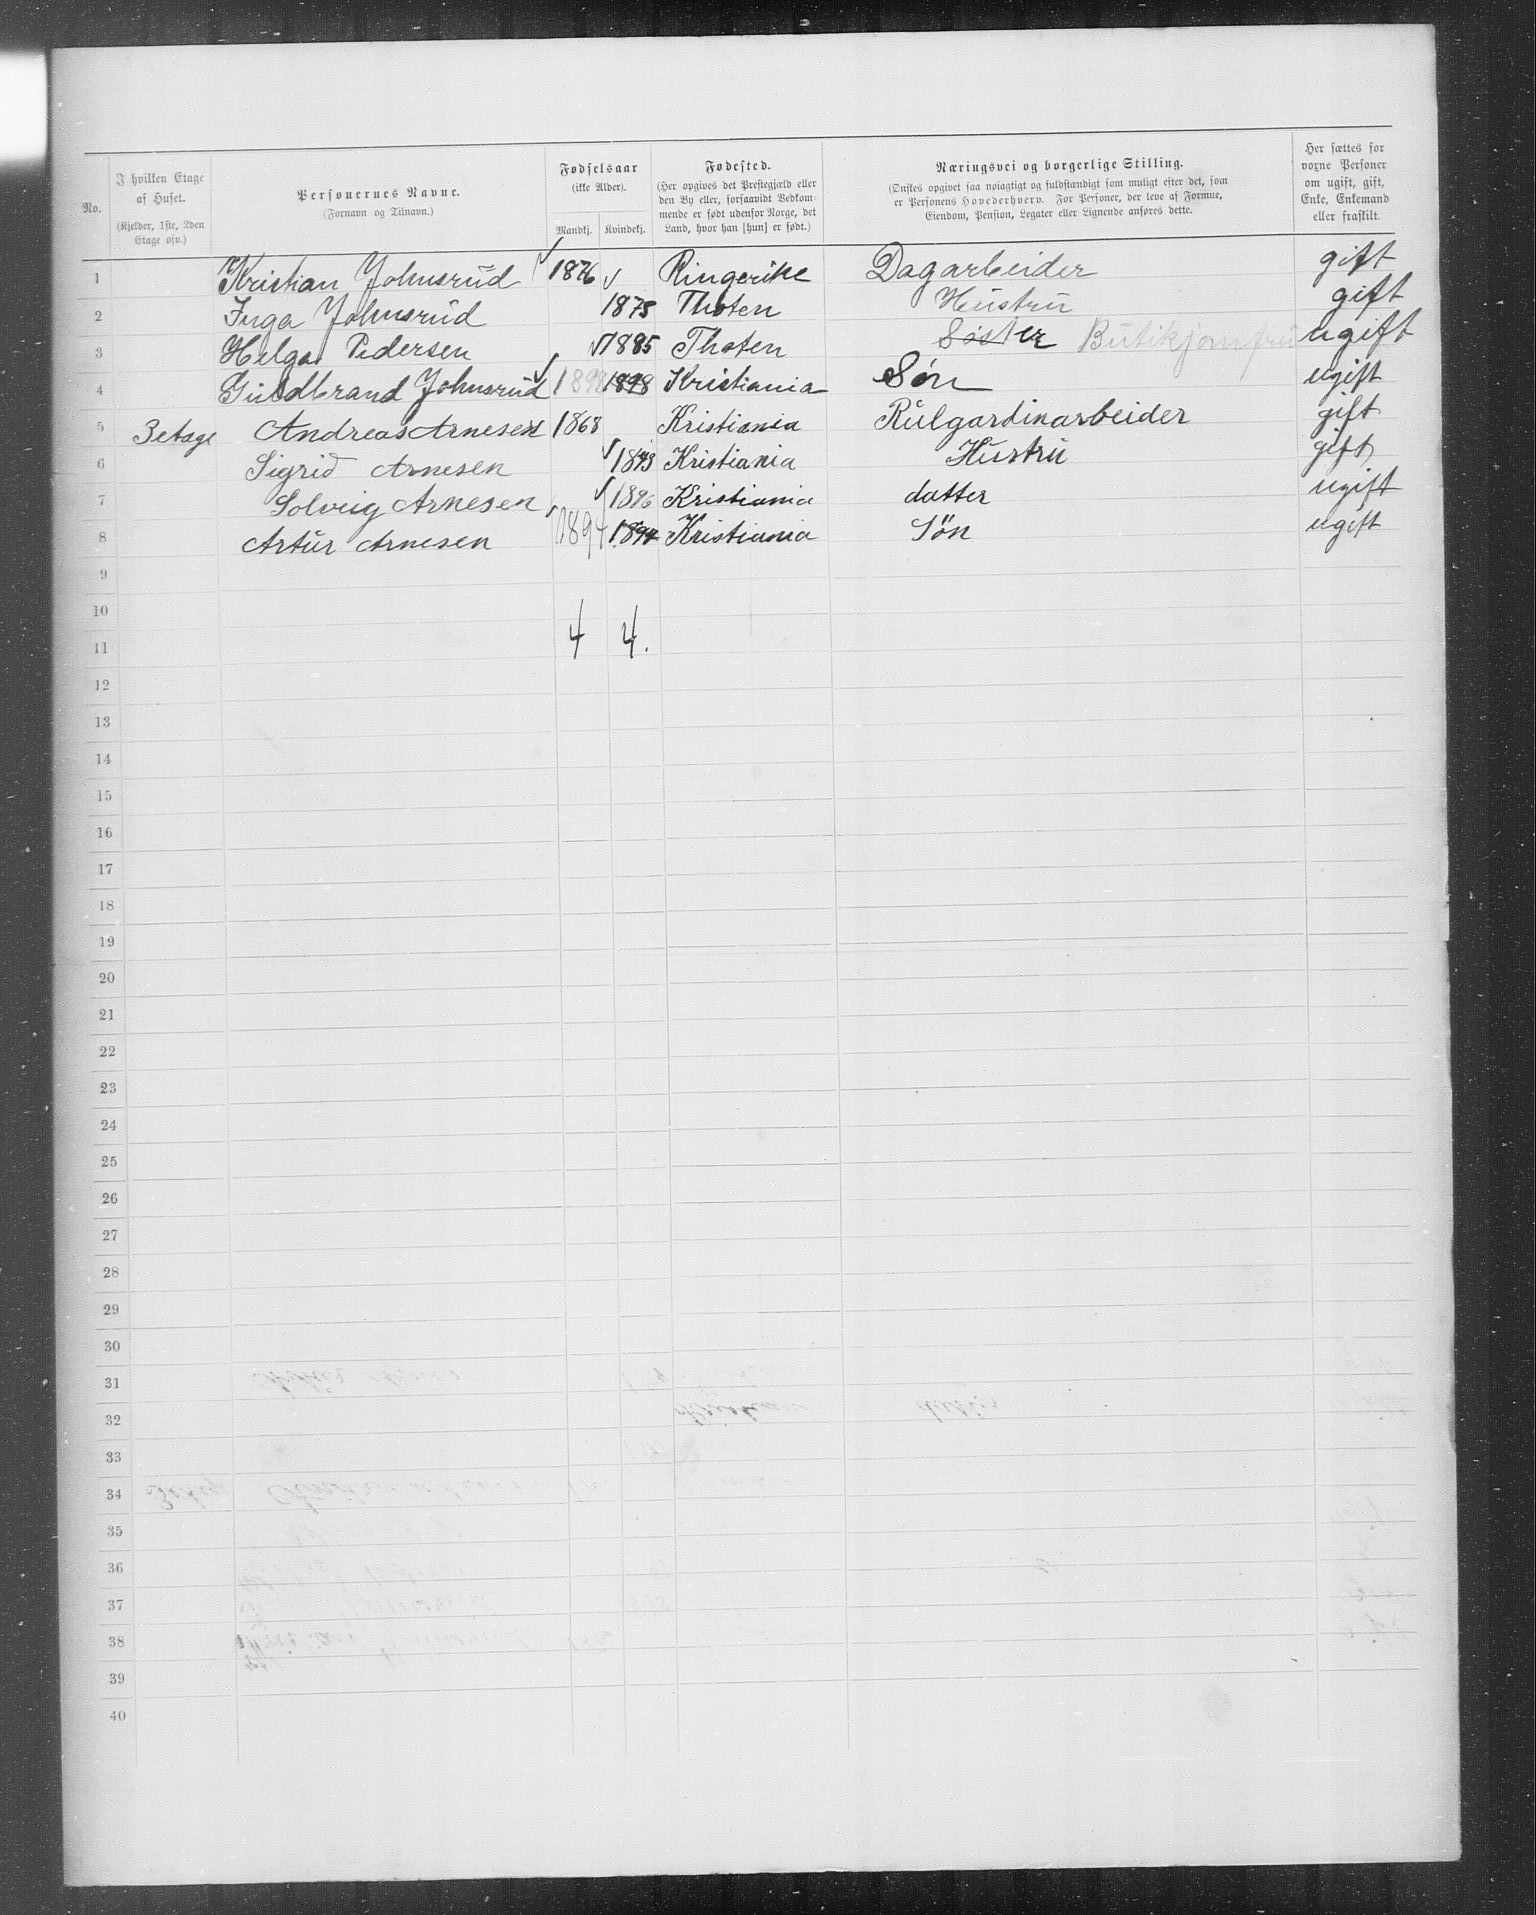 No.
I hvilken Etage af Huset.
(Kjelder, 1ste, 2den Etage osv.)
Personernes Navne.
(Fornavn og Tilnavn.)
Fødselsaar
(ikke Alder).
Mandkj. Kvindekj.
Fødested.
(Her opgives det Prestegjæld eller den By eller, forsaavidt Vedkommende er født udenfor Norge, det Land, hvor han [hun] er født.)
Næringsvei og borgerlige Stilling.
(Ønskes opgivet saa nøiagtigt og fuldstændigt som muligt efter det, som er Personens Hovederhverv. For Personer, der leve af Formue, Eiendom, Pension, Legater eller Lignende anføres dette.
Her sættes for voxne Personer om ugift, gift, Enke, Enkemand eller fraskilt.
1 Kristian Johnsrud 1876 Ringerike Dagarbeider gift
2 Inga Johnsrud 1875 Thoten Hustru gift
3 Helga Pedersen 1885 Thoten Søster Butikjomfru ugift
4 Guldbrand Johnsrud 1898 1898 Kristiania Søn ugift
5 3 etage Andreas Arnesen 1868 Kristiania Rulgardinarbeider gift
6 Sigrid Arnesen 1873 Kristiania Hustru gift
7 Solveig Arnesen 1896 Kristiania datter ugift
8 Artur Arnesen 1894 1894 Kristiania Søn ugift
9
10
4 4.
11
12
13
14
15
16
17
18
19
20
21
22
23
24
25
26
27
28
29
30
31
32
33
34
35
36
37
38
39
40